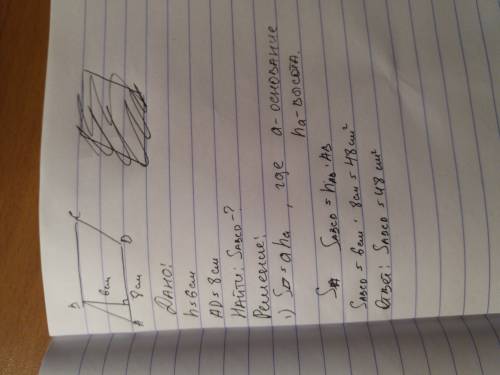 B C
h 6см
A 8см D
Дано:
h = 6см
AD = 8см
Найти: SABCD - ?
Решение:
1) S▱ = aha, где a - основание
ha - высота.
SABCD = hAD · AD
SABCD = 6см · 8см = 48см²
Ответ: SABCD = 48см²